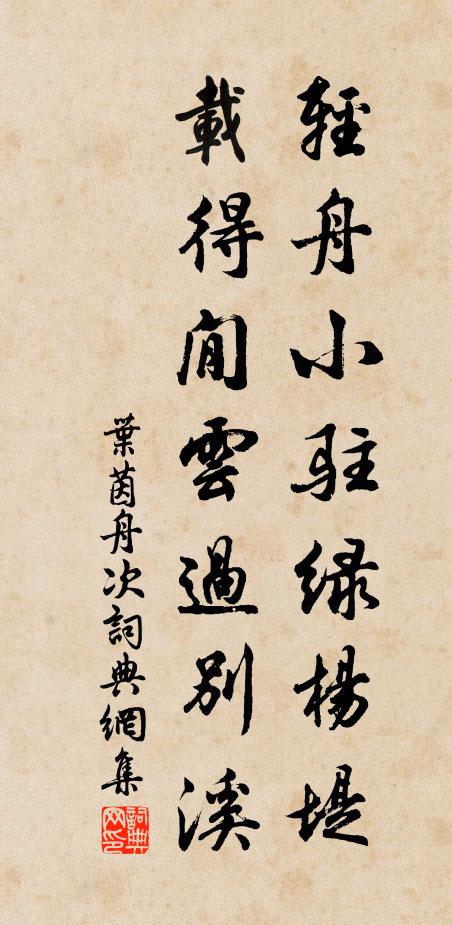 輕舟小駐緑楊堤
載得閒雲過别溪
葉茵舟次詞典網集
詞典網印